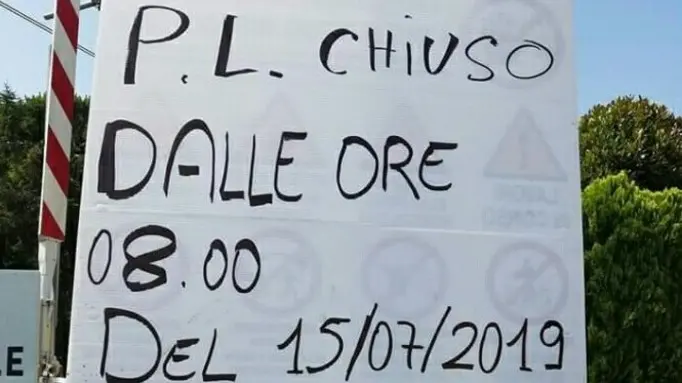 P.L. CHIUSO
DALLE ORE
08.00
DEL 15/07/2019